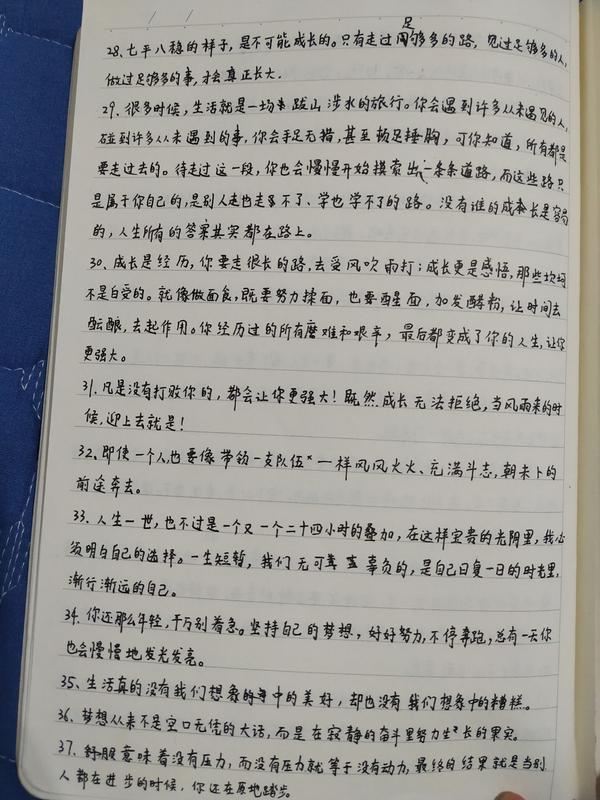 28、七平八稳的样子，是不可能成长的。只有走过足够多的路，见过足够多的人，
做过足够多的事，才会真正长大。
29、很多时候，生活就是一场跋山涉水的旅行。你会遇到许多从未遇见的人，
碰到许多从未遇到的事，你会手足无措，甚至顿足捶胸，可你知道，所有都是
要走过去的。待走过这一段，你也会慢慢开始摸索出一条条道路，而这些路只
是属于你自己的，是别人走也走不了、学也学不了的路。没有谁的成长是容易
的，人生所有的答案其实都在路上。
30、成长是经历，你要走很长的路，去受风吹雨打；成长更是感悟，那些坎坷
不是白受的。就像做面食，既要努力揉面，也要醒面，加发酵粉，让时间去
酝酿，去起作用。你经历过的所有磨难和艰辛，最后都变成了你的人生，让你
更强大。
31、凡是没有打败你的，都会让你更强大！既然成长无法拒绝，当风雨来的时
候，迎上去就是！
32、即使一个人也要像带领一支队伍一样风风火火、充满斗志，朝未卜的
前途奔去。
33、人生一世，也不过是一个又一个二十四小时的叠加，在这样宝贵的光阴里，我必
须明白自己的选择。一生短暂，我们无可辜负的，是自己日复一日的时光里，
渐行渐远的自己。
34、你还那么年轻，千万别着急。坚持自己的梦想，好好努力，不停奔跑，总有一天你
也会慢慢地发光发亮。
35、生活真的没有我们想象中的美好，却也没有我们想象中的糟糕。
36、梦想从来不是空口无凭的大话，而是在寂静的奋斗里努力生长的果实。
37、舒服意味着没有压力，而没有压力就等于没有动力，最终的结果就是当别
人都在进步的时候，你还在原地踏步。